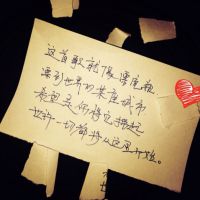 这首歌就像漂流瓶
漂到世界的某座城市
希望是你将它捞起
也许一切都将从这里开始。